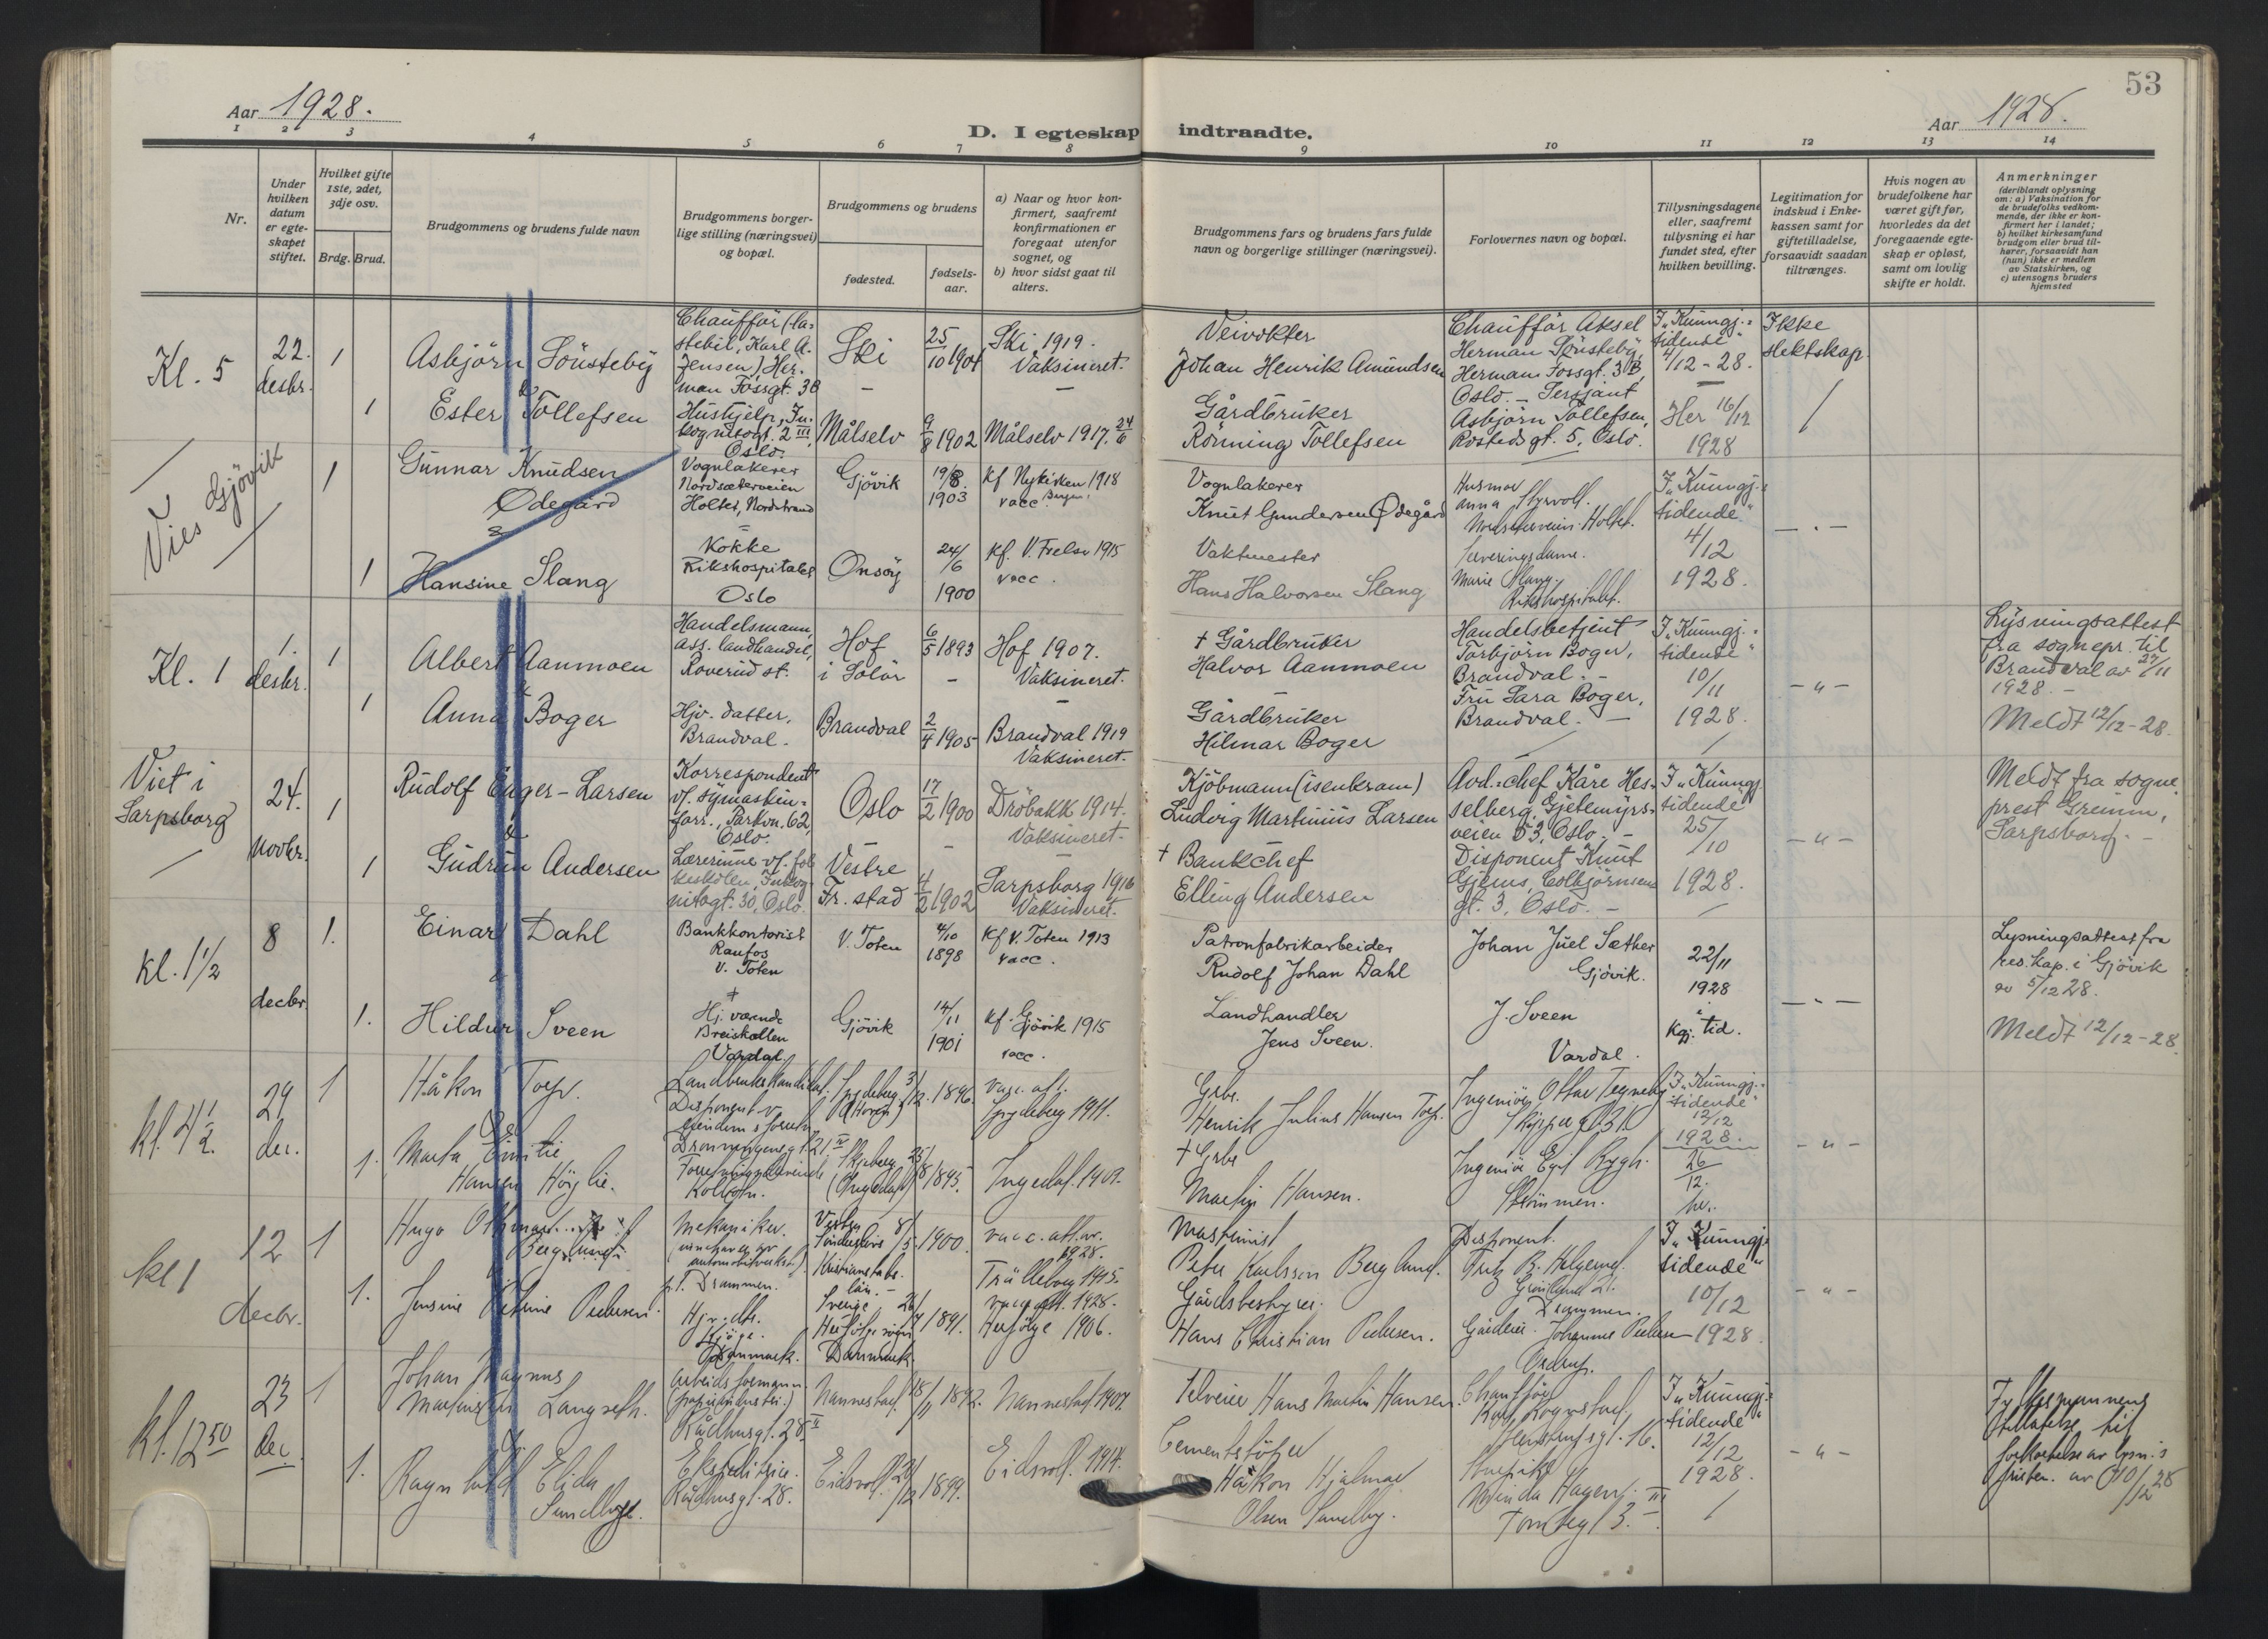 53
Aar 1928.
Aar 1928.
D. I egteskap indtraadte.
1 2 3 4 5 6 7 8 9 10 11 12 13 14
Nr.
Under
hvilken
datum
er egte-
skapet
stiftet.
Hvilket gifte
1ste, 2det,
3dje osv.
Brdg. Brud.
Brudgommens og brudens fulde navn
Brudgommens borger-
lige stilling (næringsvei)
og bopæl.
Brudgommens og brudens
fødested.
fødsels-
aar.
a) Naar og hvor kon-
firmert, saafremt
konfirmationen er
foregaat utenfor
sognet, og
b) hvor sidst gaat til
alters.
Brudgommens fars og brudens fars fulde
navn og borgerlige stillinger (næringsvei).
Forlovernes navn og bopæl.
Tillysningsdagene
eller, saafremt
tillysning ei har
fundet sted, efter
hvilken bevilling.
Legitimation for
indskud i Enke-
kassen samt for
giftetilladelse,
forsaavidt saadan
tiltrænges.
Hvis nogen av
brudefolkene har
været gift før,
hvorledes da det
foregaaende egte-
skap er opløst,
samt om lovlig
skifte er holdt.
Anmerkninger
(deriblandt oplysning
om: a) Vaksination for
de brudefolks vedkom-
mende, der ikke er kon-
firmert her i landet;
b) hvilket kirkesamfund
brudgom eller brud til-
hører, forsaavidt han
(hun) ikke er medlem
av Statskirken, og
c) utensogns bruders
hjemsted
Kl. 5
22.
desbr.
1
Asbjörn Sönsteby
&
1
Ester Tollefsen
Chaufför (la-
stebil, Karl A.
Jensen) Her-
man Fossgt. 3B
Hushjelp, In-
kognitogt. 2 III,
Oslo.
Ski
25/10 1904
Ski, 1919.
Vaksineret.
Målselv
9/8 1902
Målselv 1917. 24/6
Veivokter
Johan Henrik Amundsen
Gårdbruker
Rönning Tollefsen
Chaufför Aksel
Herman Sönsteby,
Herman Fossgt. 3B,
Oslo. - Sersjant
Asbjörn Tollefsen,
Rostedsgt. 5, Oslo.
I „Kunngj.-
tidende"
4/12-28.
Her 16/12
1928
Ikke
slektskap.
Vies Gjövik
1
Gunnar Knudsen
Ødegård
&
1
Hansine Slang
Vognlakerer
Nordsæterveien
Holtet, Nordstrand
Kokke
Rikshospitalet
Oslo
Gjövik
19/8.
1903
kf Nykirken 1918
vacc. Bergen.
Onsöy
24/6
1900
kf. V. Frelser 1915
vacc.
Vognlakerer
Knut Gundersen Ødegård
Vaktmester
Hans Halvorsen Slang
Husmor
Anna Styrvoll.
Serveringsdame.
Marie Slang.
Rikshospitalet.
I „Kunngj.-
tidende"
4/12
1928.
Kl. 1
1.
desbr.
1
Albert Aanmoen
&
1
Anna Boger
Handelsmann,
ass. landhandel,
Roverud st.
Hjv. datter,
Brandval.
Hof
i Solör
6/5 1893
Hof 1907.
Vaksineret.
Brandval
2/4 1905
Brandval 1919
Vaksineret.
† Gårdbruker
Halvor Aanmoen
Gårdbruker
Hilmar Boger
Handelsbetjent
Torbjörn Boger,
Brandval. -
Fru Sara Boger,
Brandval. -
I „Kunngj.-
tidende"
10/11
1928.
- " -
Lysningsattest
fra sognepr. til
Brandval av 27/11
1928. -
Meldt 12/12-28.
Viet i
Sarpsborg
24.
novbr.
1
Rudolf Enger-Larsen
&
1
Gudrun Andersen
Korrespondent
v/. symaskin-
forr., Parkvn. 62,
Oslo.
Lærerinne v/. fol-
keskolen, Inkog-
nitogt. 30, Oslo.
Oslo
17/2 1900
Dröbakk 1914.
Vaksineret.
Vestre
Fr. stad
4/2 1902
Sarpsborg 1916
Vaksineret.
Kjöbmann (isenkram)
Ludvig Martinius Larsen
† Bankchef
Elling Andersen
Avd.-chef Kåre Hes-
selberg, Gjetemyrs-
veien 53, Oslo. -
Disponent Knut
Gjems, Colbjörnsens
gt. 3, Oslo. -
I „Kunngj.-
tidende"
25/10
1928.
- " -
Meldt fra sogne-
prest Grimm,
Sarpsborg. -
Kl. 1 1/2
8
decbr
1.
Einar Dahl
&
1.
Hildur Sveen
Bankkontorist
Raufos
V. Toten
Hj. værende
Breiskallen
Vardal.
V. Toten
4/10
1898
Kf V. Toten 1913
vacc.
Gjövik
14/11
1901
kf. Gjövik 1915
vacc.
Patronfabrikarbeider
Rudolf Johan Dahl
Landhandler
Jens Sveen.
Johan Juel Sæther
Gjövik.
J. Sveen
Vardal.
22/11
1928
i
Kgj. tid.
- " -
Lysningsattest fra
res. kap. i Gjövik
av 5/12 28.
Meldt 12/12-28.
kl. 4 1/2.
29
dec.
1
Håkon Torp.
&
1.
Marta Emilie
Hansen Höglie.
Landbrukskandidat.
Disponent v.
Dronningensgt. 21 IV
Kolbotn.
Spydeberg
3/12. 1896.
vacc. att.
Spydeberg 1911.
Skjeberg
(Ingedal)
25/8 1895.
Ingedal. 1909.
Grbr.
Henrik Julius Hansen Torp.
† Grbr
Martin Hansen.
Ingeniör Ottar Tegneby
Skippergt. 31.
Ingeniör Egil Rygh.
Strömmen.
I „Kunngj.-
tidende"
12/12
1928.
26/12.
hr.
- " -
kl 1
12
decbr.
1
Hugo
Berglund
&
1.
Jensine Petrine Pedersen.
Mekaniker.
p.t. Drammen.
Hjv. dtr.
Kjöge.
Danmark.
Kristianstads
län. -
Sverige
8/5 1900.
vacc. att. av.
1928.
Trälleborg 1915.
Herfölge sogn
Danmark.
26/4 1891.
vacc att. 1928.
Herfölge 1906.
Maskinist
Peter Karlsson Berglund.
Gårdsbestyrer.
Hans Christian Pedersen.
Disponent.
Fritz R. Helgerud.
Grönland 21.
Drammen.
Gårdeier. Johannes Pedersen
I „Kunngj.-
tidende"
10/12
1928.
- " -
kl. 12 50
23
Dec.
1
Johan Magnus
Martinsen Langseth.
&
1.
Ragnhild Elida
Sundbye.
Arbeidsformann
Rådhusgt. 28 II
Ekspeditrice.
Rådhusgt. 28.
Nannestad
18/11 1892.
Nannestad 1907.
Eidsvoll.
1899.
Eidsvoll. 1914.
Selveier Hans Martin Hansen.
Cementstöper
Håkon Hjalmar
Olsen Sundby.
Chaufför
Karl Rognstad,
16.
Minda Hagen.
Tomtegt 3. III
I „Kunngj.-
tidende"
12/12
1928.
- " -
tillatelse til
av lysn. i
av 10/12 28